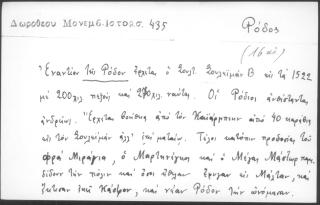 Δωροθεου Μονεμβ. Ιστορ. 435
Ρόδος
(16 αἰ)
Ἐναντίον τῆς Ρόδου ἔρχεται ὁ Σουλτ. Σουλεϊμὰν Β εἰς τὰ 1522
μὲ 200χιλ. πεζοὺς καὶ χιλ. ναύτας. Οἱ Ρόδιοι ἀνθίστανται
ἀνδρείως. Ἔρχεται βοήθεια ἀπὸ τὸν ἀπὸ 40 καράβια
εἰς τὸν Σουλεϊμὰν ἀλλ' ἐπὶ ματαίῳ. Τέλος κατόπιν προδοσίας τοῦ
φρὰ Μιράγια, ὁ Μαρτινέγκος καὶ ὁ Μέγας Μάστωρ παρα-
δίδουν τὴν πόλιν καὶ ὅσοι ἤθελαν ἔφυγαν εἰς Μάλταν, καὶ
ἔκτισαν ἐκεῖ Κάστρον, καὶ νέαν Ρόδον τὴν ὠνόμασαν.